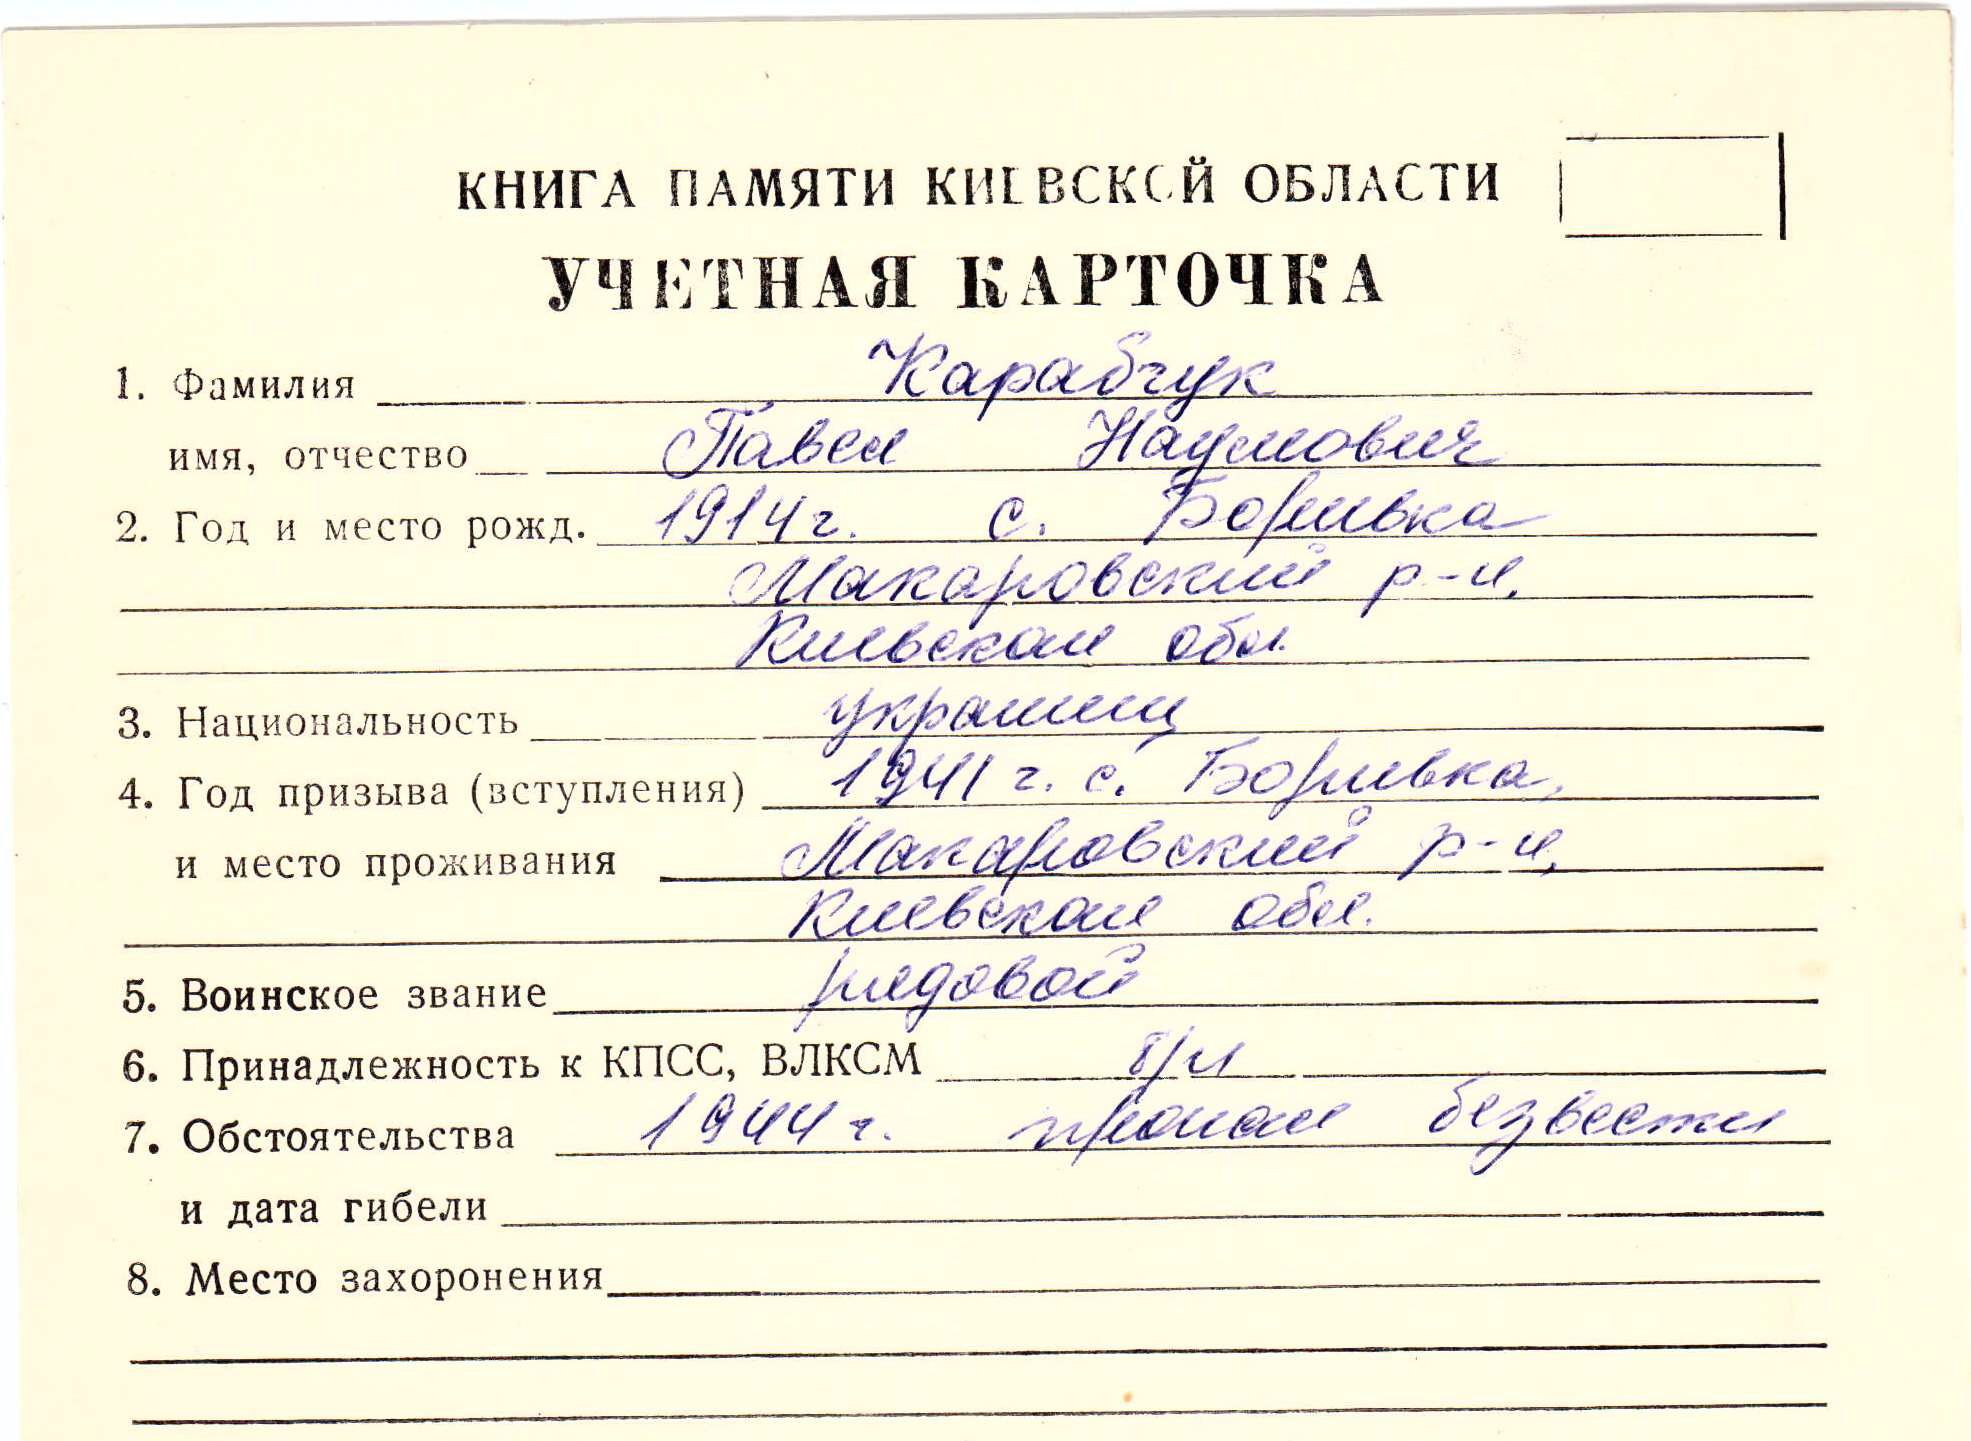 КНИГА ПАМЯТИ КИЕВСКОЙ ОБЛАСТИ
УЧЕТНАЯ КАРТОЧКА
1. Фамилия Карабчук
имя, отчество Павел Наумович
2. Год и место рожд. 1914 г. с. Боривка
Макаровский р-н,
Киевской обл.
3. Национальность украинец
4. Год призыва (вступления) 1941 г. с. Боривка,
и место проживания Макаровский р-н,
Киевской обл.
5. Воинское звание рядовой
6. Принадлежность к КПСС, ВЛКСМ б/п
7. Обстоятельства 1944 г. пропал безвести
и дата гибели
8. Место захоронения